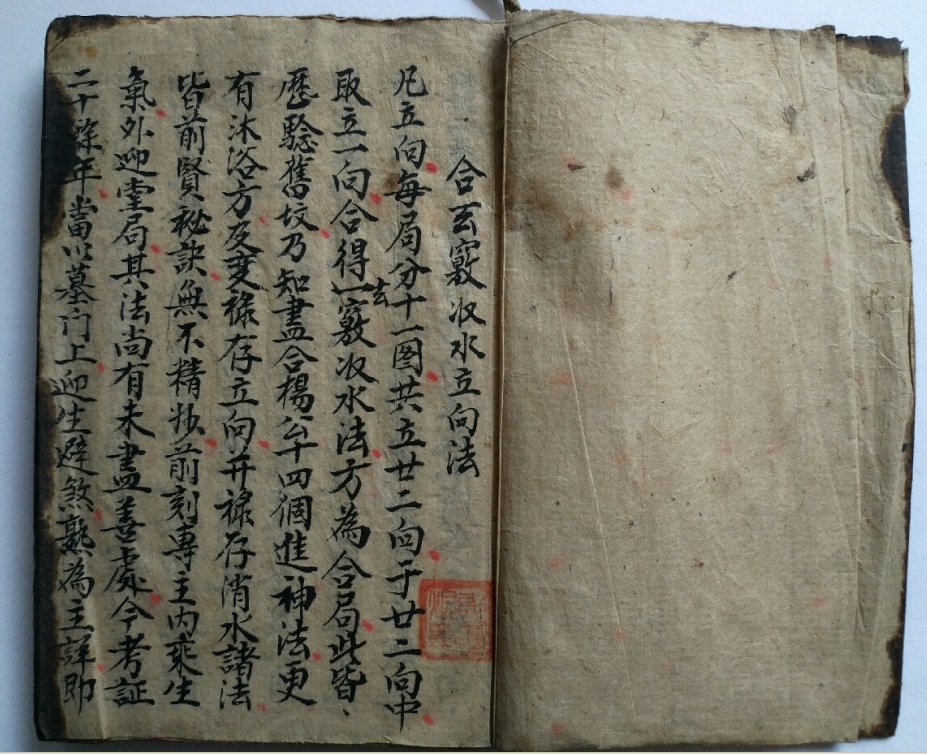 合玄竅收水立向法
凡立向每局分十一图共立廿二向于廿二向中
取立一向合得一玄竅收水法方為合局此皆
歷騐舊坟乃知盡合楊公十四個進神法更
有沐浴方反变祿存立向并祿存消水諸法
皆前賢秘訣無不精妙前刻專主內乘生
氣外迎堂局其法尚有未盡善處今考証
二十餘年當以墓门上迎生避煞熟為主詳即